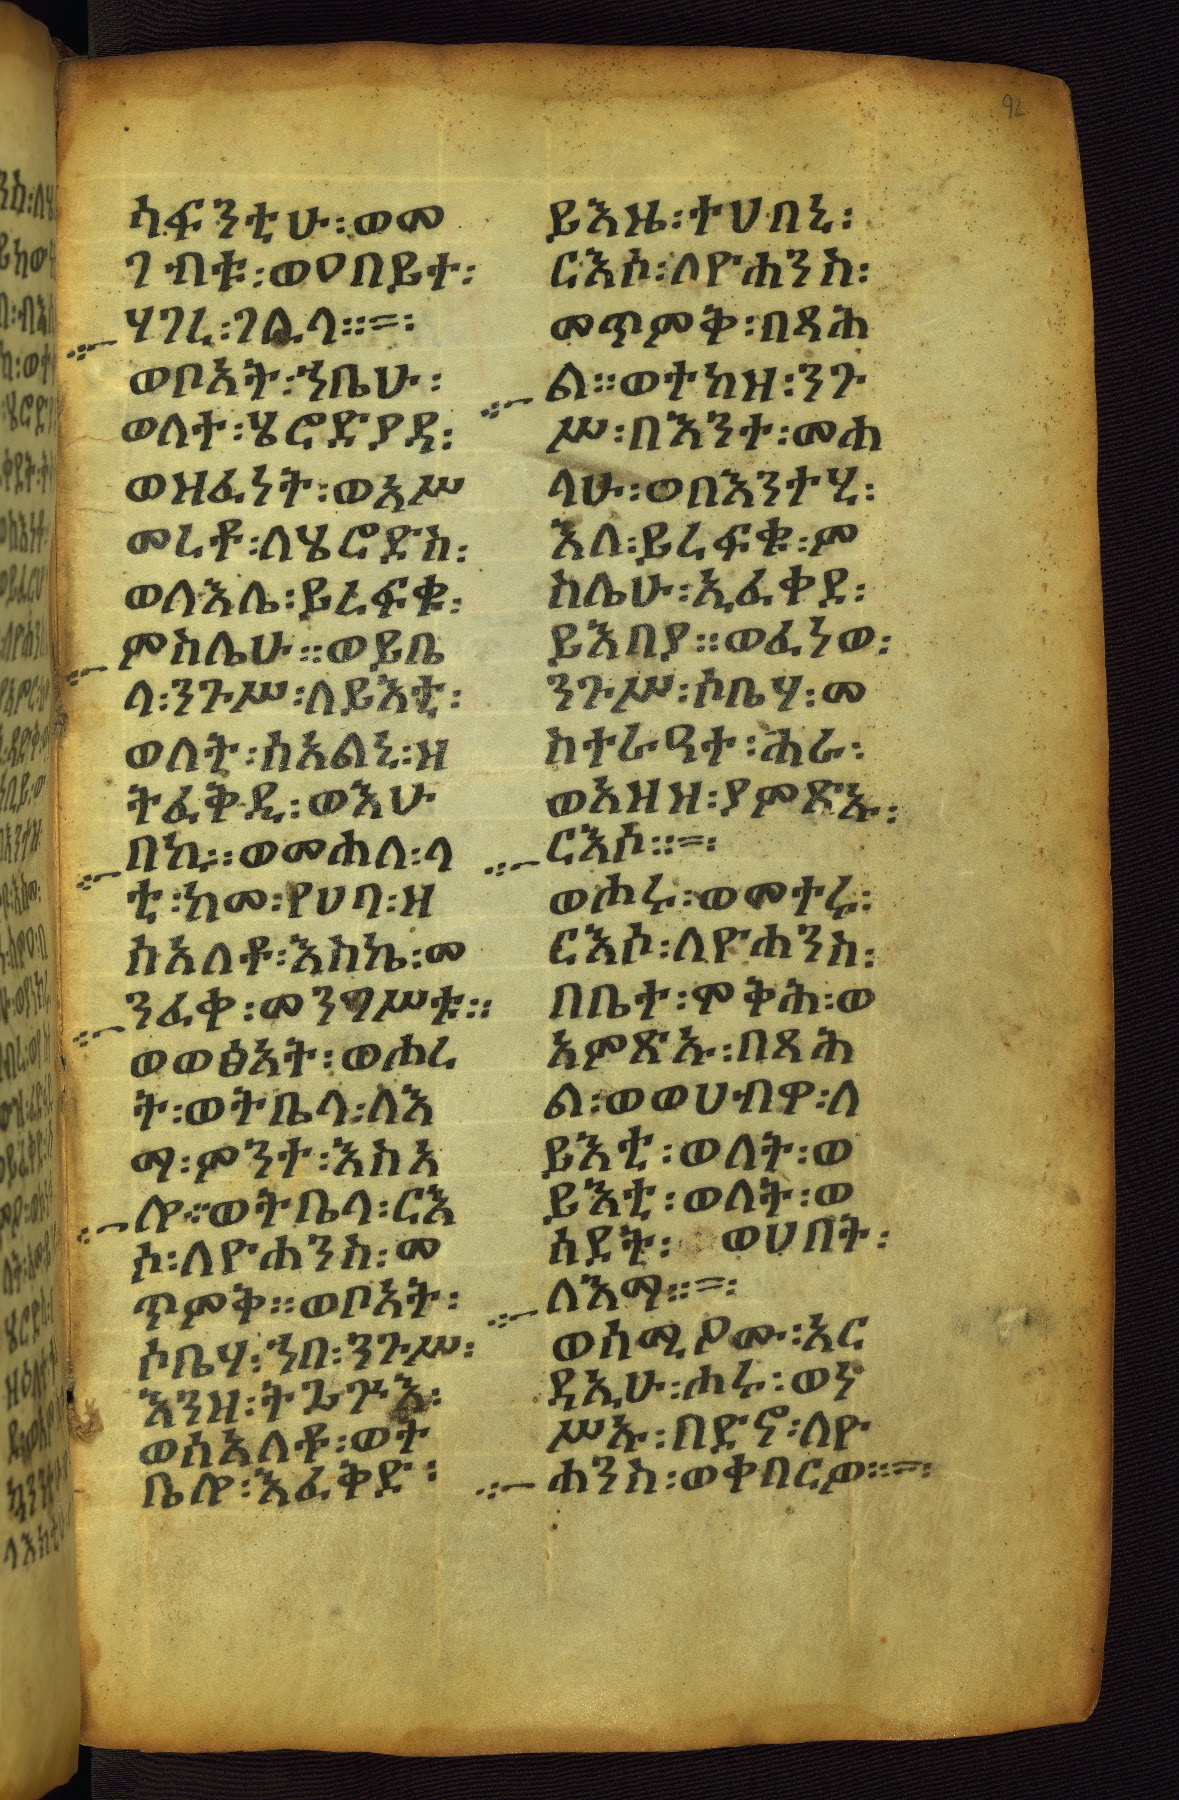 92
ላፍንቲሁ፡ወመ
ገብቱ፡ወዐበይተ፡
ሃገረ፡ገሊላ።=፡
ወቦአት፡ኀቤሁ፡
ወለተ፡ሄሮድያዳ፡
ወዘፈነት፡ወአሥ
መረቶ፡ለሄሮድስ፡
ወለእለ፡ይረፍቁ፡
ምስሌሁ።ወይቤ
ላ፡ንጉሥ፡ለይእቲ፡
ወለት፡ሰአልኒ፡ዘ
ትፈቅዲ፡ወእሁ
በኪ።ወመሐለ፡ላ
ቲ፡ከመ፡የሀባ፡ዘ
ሰአለቶ፡እስከ፡መ
ንፈቀ፡መንግሥቱ።
ወወፅአት፡ወሐረ
ት፡ወትቤላ፡ለእ
ማ፡ምንተ፡እስአ
ሎ።ወትቤላ፡ርእ
ሶ፡ለዮሐንስ፡መ
ጥምቅ።ወቦአት፡
ሶቤሃ፡ኀበ፡ንጉሥ፡
እንዘ፡ትጔጕእ፡
ወሰአለቶ፡ወት
ቤሎ፡እፈቅድ፡
ይእዜ፡ተሀበኒ፡
ርእሶ፡ለዮሐንስ፡
መጥምቅ፡በጻሕ
ል።ወተከዘ፡ንጉ
ሥ፡በእንተ፡መሐ
ላሁ፡ወበእንተሂ፡
እለ፡ይረፍቁ፡ም
ስሌሁ፡ኢፈቀደ፡
ይእበያ።ወፈነወ፡
ንጉሥ፡ሶቤሃ፡መ
ስተራዒተ፡ሐራ፡
ወአዘዘ፡ያምጽኡ፡
ርእሶ።=፡
ወሐሩ፡ወመተሩ፡
ርእሶ፡ለዮሐንስ፡
በቤተ፡ምቅሕ፡ወ
አምጽኡ፡በጻሕ
ል፡ወወሀብዋ፡ለ
ይእቲ፡ወለት፡ወ
ይእቲ፡ወለት፡ወ
ሰደት፡ ወሀበት፡
ለእማ።=፡
ወሰሚዖሙ፡አር
ዳኢሁ፡ሐሩ፡ወነ
ሥኡ፡በድኖ፡ለዮ
ሐንስ፡ወቀበርዎ።=፡